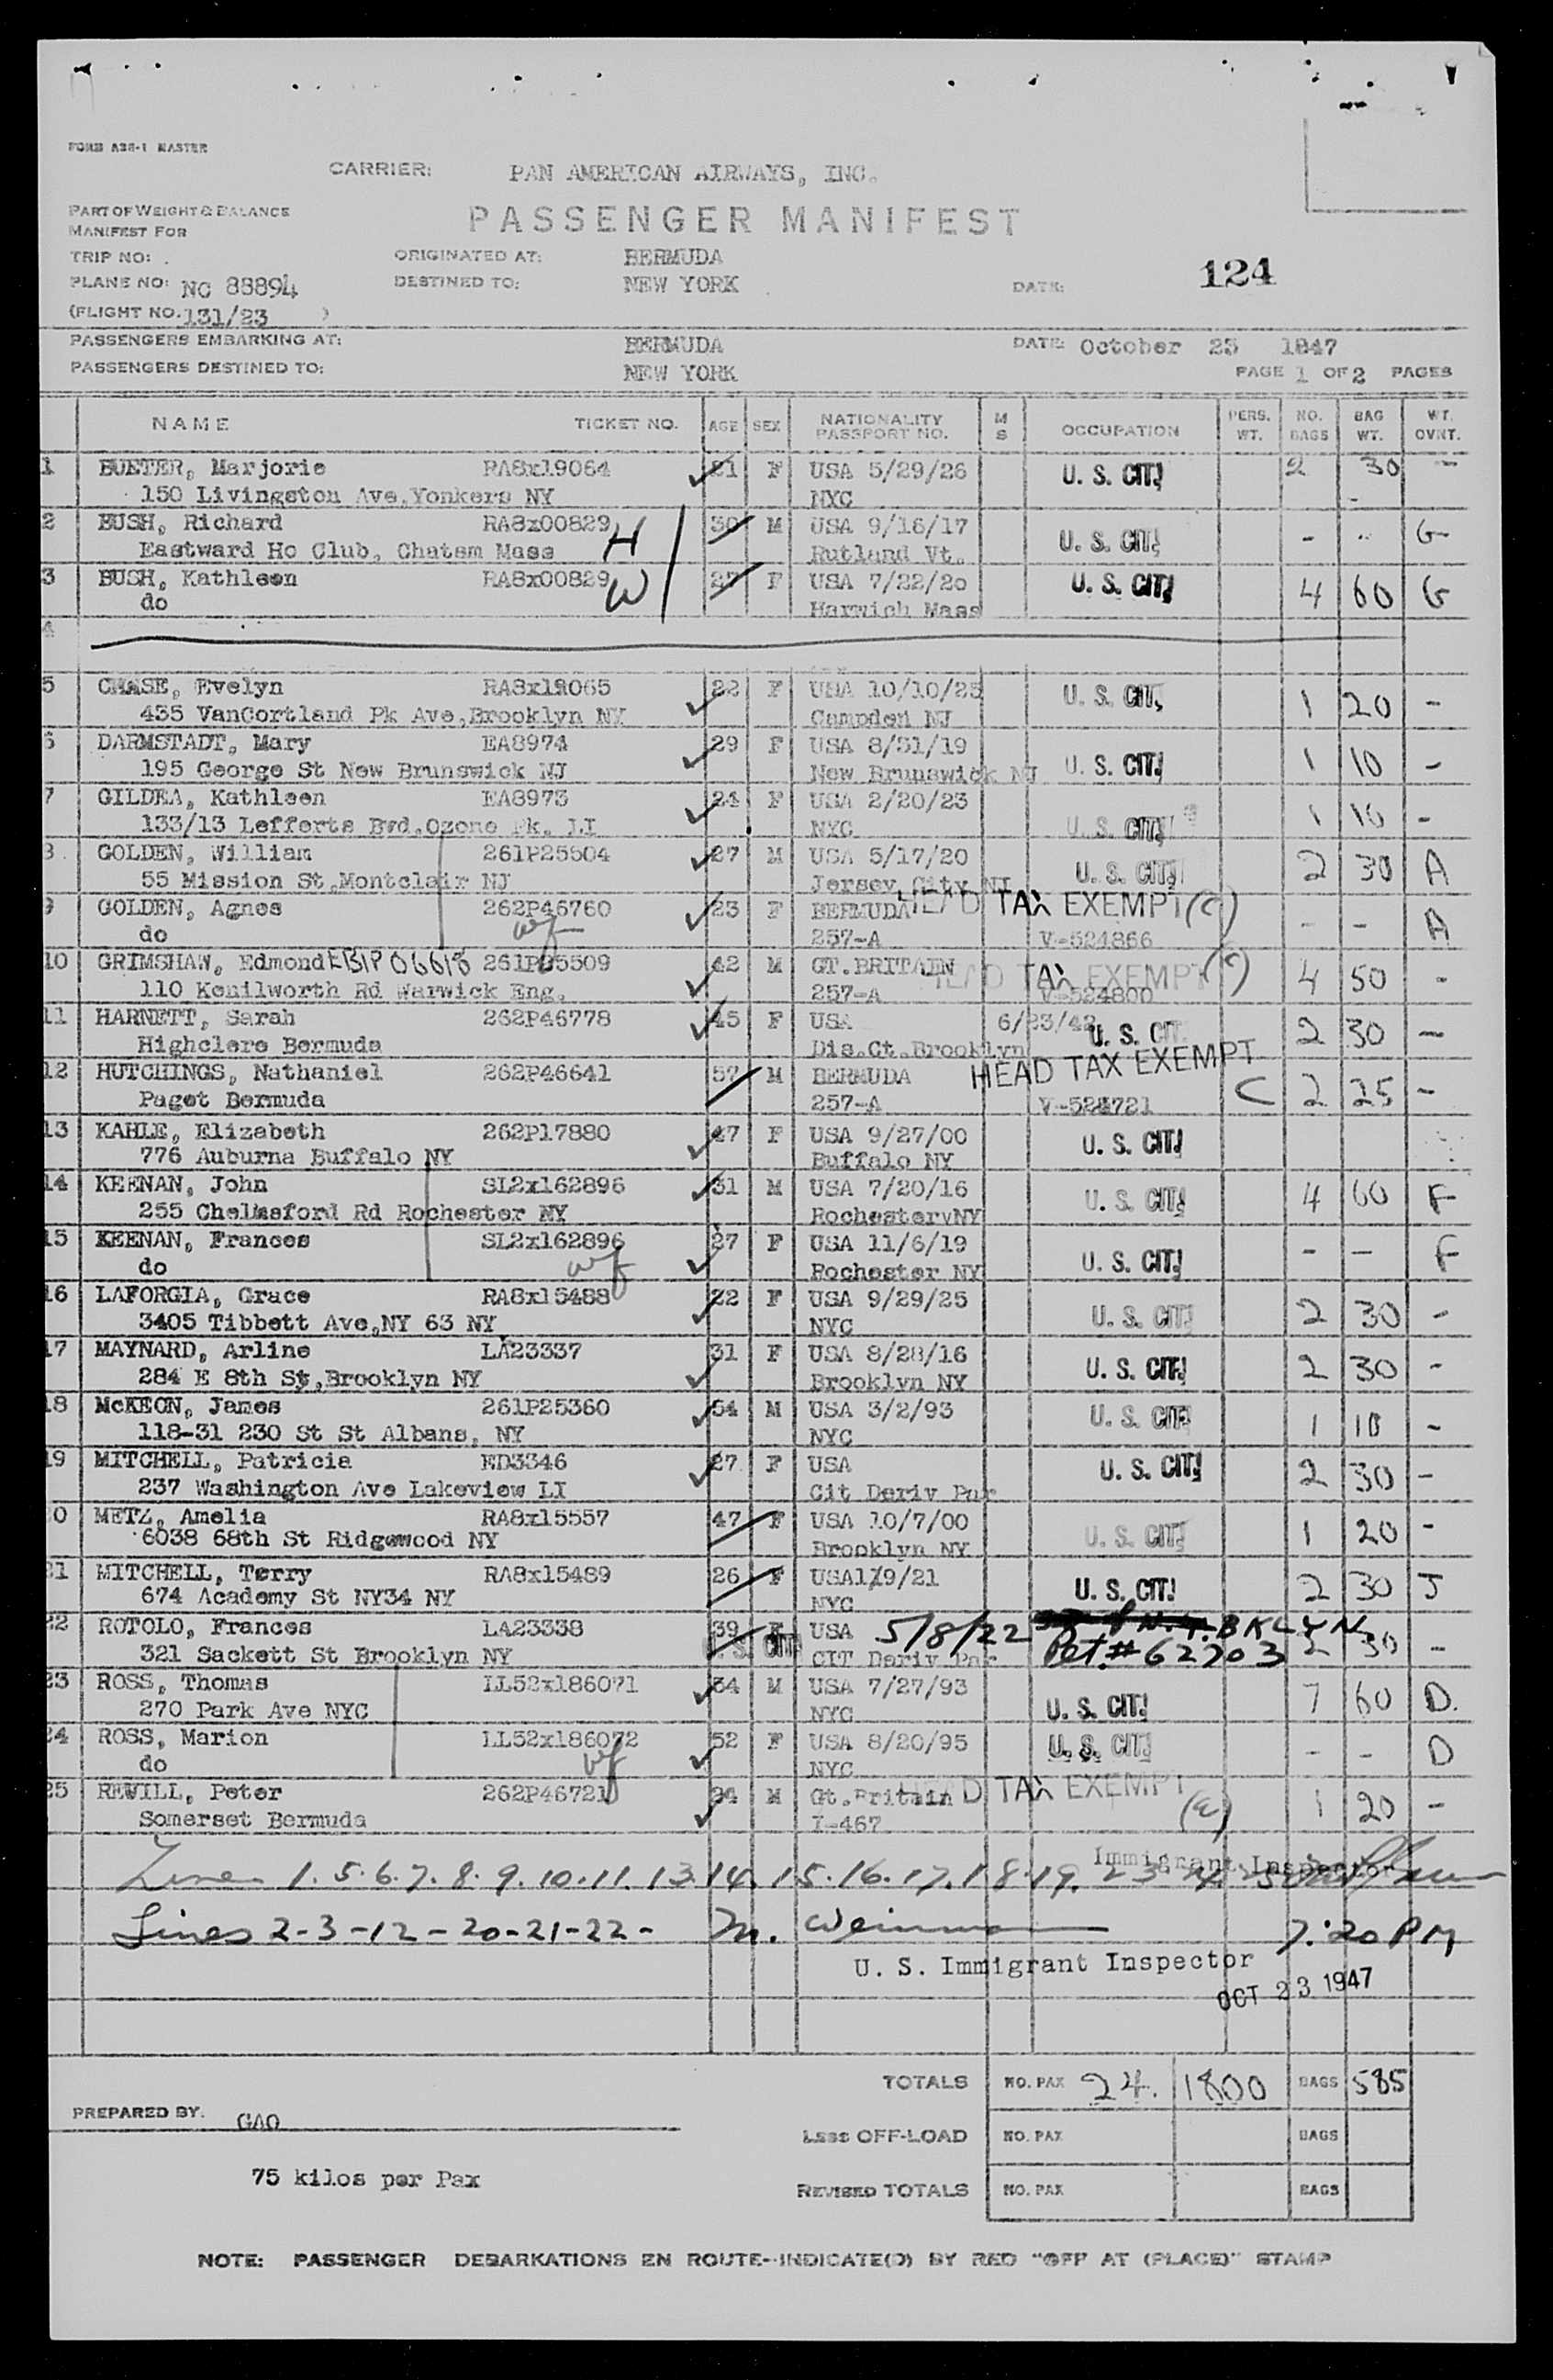 FORM A38-1 MASTER
CARRIER: PAN AMERICAN AIRWAYS, INC.
PART OF WEIGHT & BALANCE
MANIFEST FOR
PASSENGER MANIFEST
TRIP NO: . ORIGINATED AT: BERMUDA
PLANE NO: NC 88894 DESTINED TO: NEW YORK DATE: 124
(FLIGHT NO. 131/23 )
PASSENGERS EMBARKING AT: BERMUDA DATE: October 23 1947
PASSENGERS DESTINED TO: NEW YORK PAGE 1 OF 2 PAGES
NAME TICKET NO. AGE SEX NATIONALITY PASSPORT NO. M S OCCUPATION PERS. WT. NO. BAGS BAG WT. WT. OVNT.
1 BUETER, Marjorie RA8x19064 21 F USA 5/29/26 U. S. CIT. 2 30 -
150 Livingston Ave,Yonkers NY NYC
2 BUSH, Richard RA8x00829 H 30 M USA 9/16/17 U. S. CIT. - - G
Eastward Ho Club, Chatam Mass Rutland Vt.
3 BUSH, Kathleen RA8x00829 W 27 F USA 7/22/20 U. S. CIT. 4 60 G
do Harwich Mass
4
5 CHASE, Evelyn RA8x19065 22 F USA 10/10/25 U. S. CIT. 1 20 -
435 VanCortland Pk Ave,Brooklyn NY Campden NJ
6 DARMSTADT, Mary EA8974 29 F USA 8/31/19 U. S. CIT. 1 10 -
195 George St New Brunswick NJ New Brunswick NJ
7 GILDEA, Kathleen EA8973 24 F USA 2/20/23 U. S. CIT. 1 10 -
133/13 Lefferts Bvd.Ozone Pk. LI NYC
8 GOLDEN, William 261P25504 27 M USA 5/17/20 U. S. CIT. 2 30 A
55 Mission St,Montclair NJ Jersey City NJ
9 GOLDEN, Agnes 262P46760 23 F BERMUDA HEAD TAX EXEMPT (c) - - A
do wf 257-A V-524866
10 GRIMSHAW, Edmond EBIP06618 261P25509 42 M GT.BRITAIN HEAD TAX EXEMPT (c) 4 50 -
110 Kenilworth Rd Warwick Eng. 257-A V-524800
11 HARNETT, Sarah 262P46778 45 F USA 6/23/42 U. S. CIT 2 30 -
Highclere Bermuda Dis.Ct.Brooklyn
12 HUTCHINGS, Nathaniel 262P46641 57 M BERMUDA HEAD TAX EXEMPT C 2 25 -
Paget Bermuda 257-A V-524721
13 KAHLE, Elizabeth 262P17880 47 F USA 9/27/00 U. S. CIT.
776 Auburna Buffalo NY Buffalo NY
14 KEENAN, John SL2x162896 31 M USA 7/20/16 U. S. CIT. 4 60 F
255 Chelmsford Rd Rochester NY Rochester NY
15 KEENAN, Frances SL2x162896 27 F USA 11/6/19 U. S. CIT. - - F
do wf Rochester NY
16 LAFORGIA, Grace RA8x15488 22 F USA 9/29/25 U. S. CIT. 2 30 -
3405 Tibbett Ave,NY 63 NY NYC
17 MAYNARD, Arline LA23337 31 F USA 8/28/16 U. S. CIT. 2 30 -
284 E 8th St,Brooklyn NY Brooklyn NY
18 McKEON, James 261P25360 54 M USA 3/2/93 U. S. CIT. 1 10 -
118-31 230 St St Albans, NY NYC
19 MITCHELL, Patricia ED3346 27 F USA U. S. CIT. 2 30 -
237 Washington Ave Lakeview LI Cit Deriv Par
20 METZ, Amelia RA8x15557 47 F USA 10/7/00 U. S. CIT. 1 20 -
6038 68th St Ridgewood NY Brooklyn NY
21 MITCHELL, Terry RA8x15489 26 F USA 1/9/21 U. S. CIT. 2 30 J
674 Academy St NY34 NY NYC
22 ROTOLO, Frances LA23338 39 F USA 5/8/22 BKLYN. 2 30 -
321 Sackett St Brooklyn NY U. S. CIT. CIT Deriv Par Pet.# 62703
23 ROSS, Thomas LL52x186071 54 M USA 7/27/93 U. S. CIT. 7 60 D.
270 Park Ave NYC NYC
24 ROSS, Marion LL52x186072 52 F USA 8/20/95 U. S. CIT. - - D
do wf NYC
25 REWILL, Peter 262P46721 34 M Gt.Britain HEAD TAX EXEMPT 1 20 -
Somerset Bermuda I-467
Immigrant Inspector
Lines 1.5.6.7.8.9.10.11.13.14.15.16.17.18.19.23.24.25
Lines 2-3-12-20-21-22- M. Weinman 7:20 PM
U. S. Immigrant Inspector
OCT 23 1947
TOTALS NO. PAX 24. 1800 BAGS 585
PREPARED BY. GAO
LESS OFF-LOAD NO. PAX BAGS
75 kilos per Pax
REVISED TOTALS NO. PAX BAGS
NOTE: PASSENGER DEBARKATIONS EN ROUTE--INDICATE(D) BY RED "OFF AT (PLACE)" STAMP